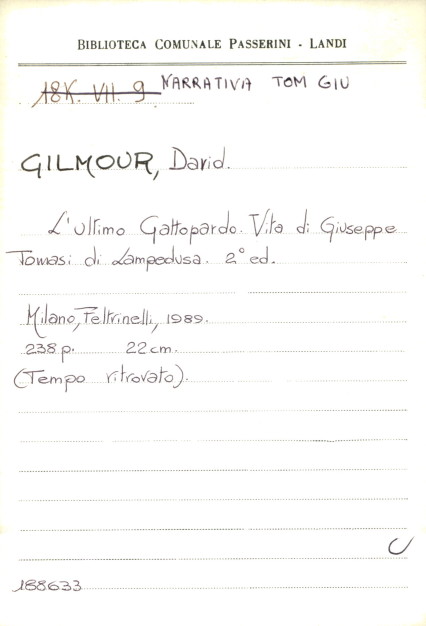 BIBLIOTECA COMUNALE PASSERINI - LANDI
18K. VII. 9 NARRATIVA TOM GIU
GILMOUR, David.
L'ultimo Gattopardo. Vita di Giuseppe
Tomasi di Lampedusa. 2° ed.
Milano, Feltrinelli, 1989.
238 p. 22 cm.
(Tempo ritrovato).
C
188633